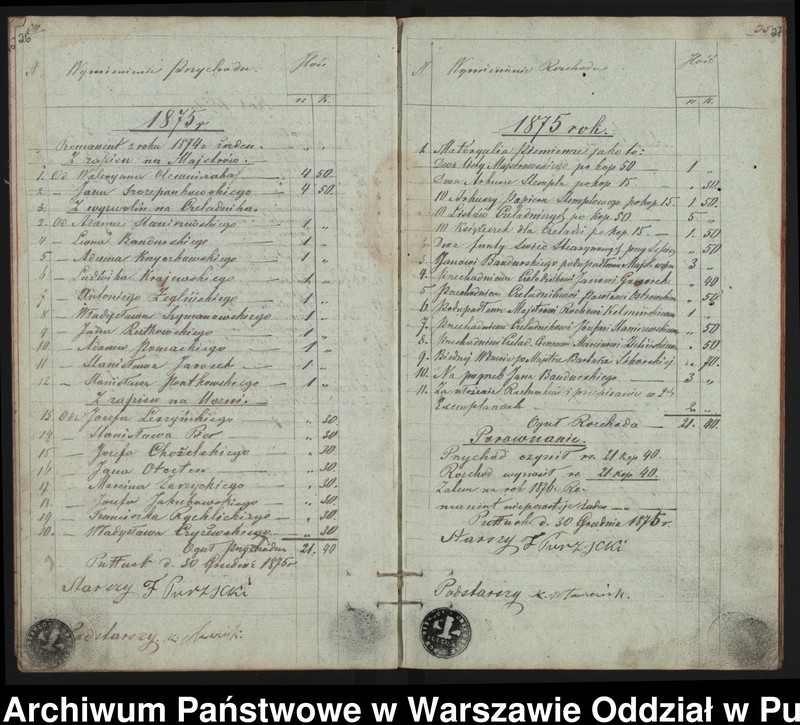 26
N Wymienienie Przychodu. Ilość
rs k.
1875 r
Remanent z roku 1874 żaden. „ „
Z zapisu na Majstrów.
1. Od Waleryana 4 50.
2. – Jana Trzcepańkowskiego – 4 50.
Z wyzwolin na Czeladnika.
3. Od Adama 1 „
4 – Leona Bandurskiego 1 „
5. – Adama 1 „
6 – Ludwika Krajewskiego 1 „
7 – Antoniego Żeglińskiego 1 „
8 – Władysława Szymanowskiego 1 „
9 – Jana Rutkowskiego 1 „
10. – Adama Pomaskiego 1 „
11 – Stanisława 1 „
12 – Stanisława Pontkowskiego 1 „
Z zapisu na Uczni.
13. Od Józefa Leszyńskiego „ 30
14 – Stanisława „ 30
15 – Józefa „ 30.
16 – Jana „ 30
17 – Marcina Zarzyckiego „ 30.
18 – Józefa Jakubowskiego „ 30
19 – Franciszka Rychlickiego „ 30
20. – Władysława „ 30
Ogół Przychodu 21. 40
Pułtusk d. 30 Grudnia 1875 r
Starszy F Purzycki
Podstarszy
27
N Wymienianie Rozchodu Ilość
rs k.
1875 rok.
1. Materyalia Piśmienne jako to:
Dwa po kop 50 – 1 „
Dwa Arkusze Stempla po kop. 15 „ 30
10 Arkuszy Papieru Stemplowego po kop. 15. 1 50
10 Listów Czeladniczych po kop. 50 – 5 „
10 Książeczek dla Czeladzi po kop. 15. – 1. 50
2. Dwa funty Świec „ 50
3. Janowi Bandurskiego podupadłemu 3 „
4. Przechodniemu Czeladnikowi Janowi „ 40
5. Przechodniemu Czeladnikowi „ 50
6. Podupadłemu Majstrowi Rochowi 1 „
7. Przechodniemu Czeladnikowi Józefowi „ 50
8. Przechodniem Czelad. Marcinowi „ 50
9. Biednej Wdowie po Majstrze 70.
10. Na pogrzeb Jana Bandurskiego – 3 „
11. Za ułożenie Rachunków i przepisanie w 2ch
Exemplarzach 2 „
Ogół Rozchodu – 21. 40
Porównanie.
Przychód czynił rs. 21 kop 40.
Rozchód wynosił rs. 21 kop. 40.
Zatem na rok 1876 Re-
manent niepozostaje żaden
Pułtusk d. 30 Grudnia 1875 r.
Starszy F Purzycki
Podstarszy
Archiwum Państwowe w Warszawie Oddział w Pu